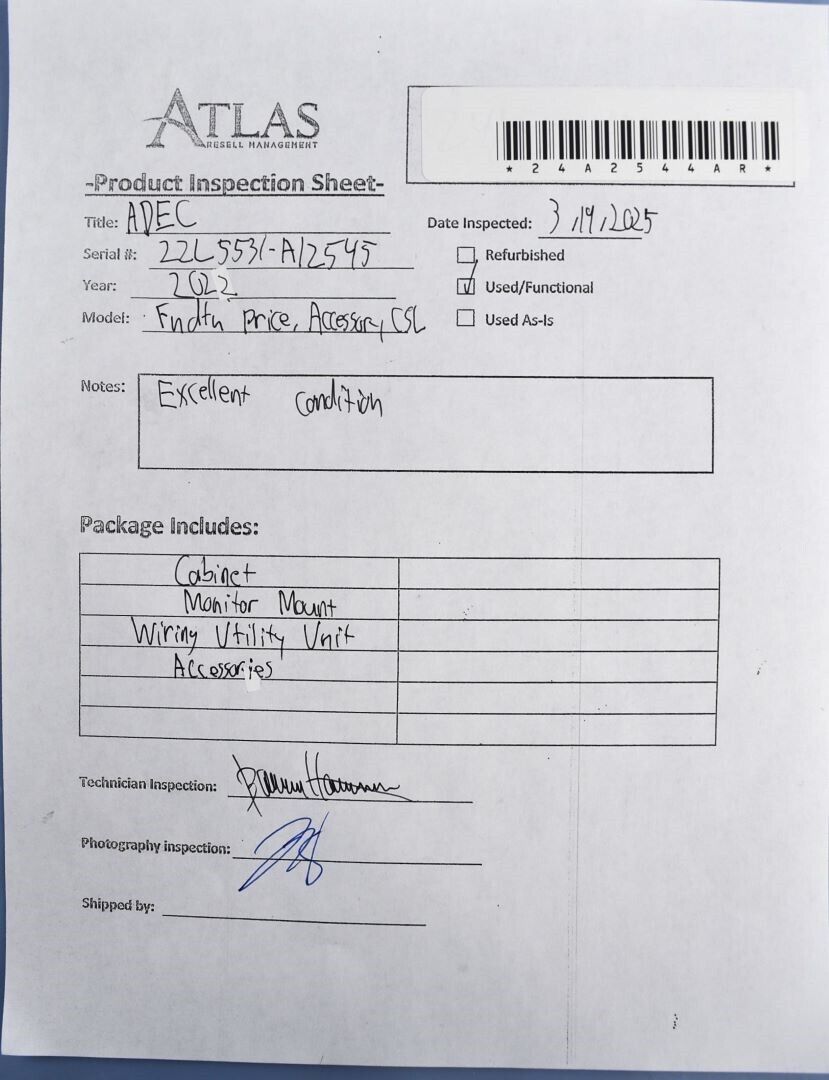 ATLAS
RESELL MANAGEMENT
*24A2544AR*
-Product Inspection Sheet-
Title: ADEC
Date Inspected: 3,19,2025
Serial #: 22L5531-A12545
Refurbished
Year: 2022
Used/Functional
Model: Fndtn price, Accessory, CSL
Used As-Is
Notes: Excellent condition
Package Includes:
Cabinet
Monitor Mount
Wiring Utility Unit
Accessories
Technician Inspection:
Photography inspection:
Shipped by: